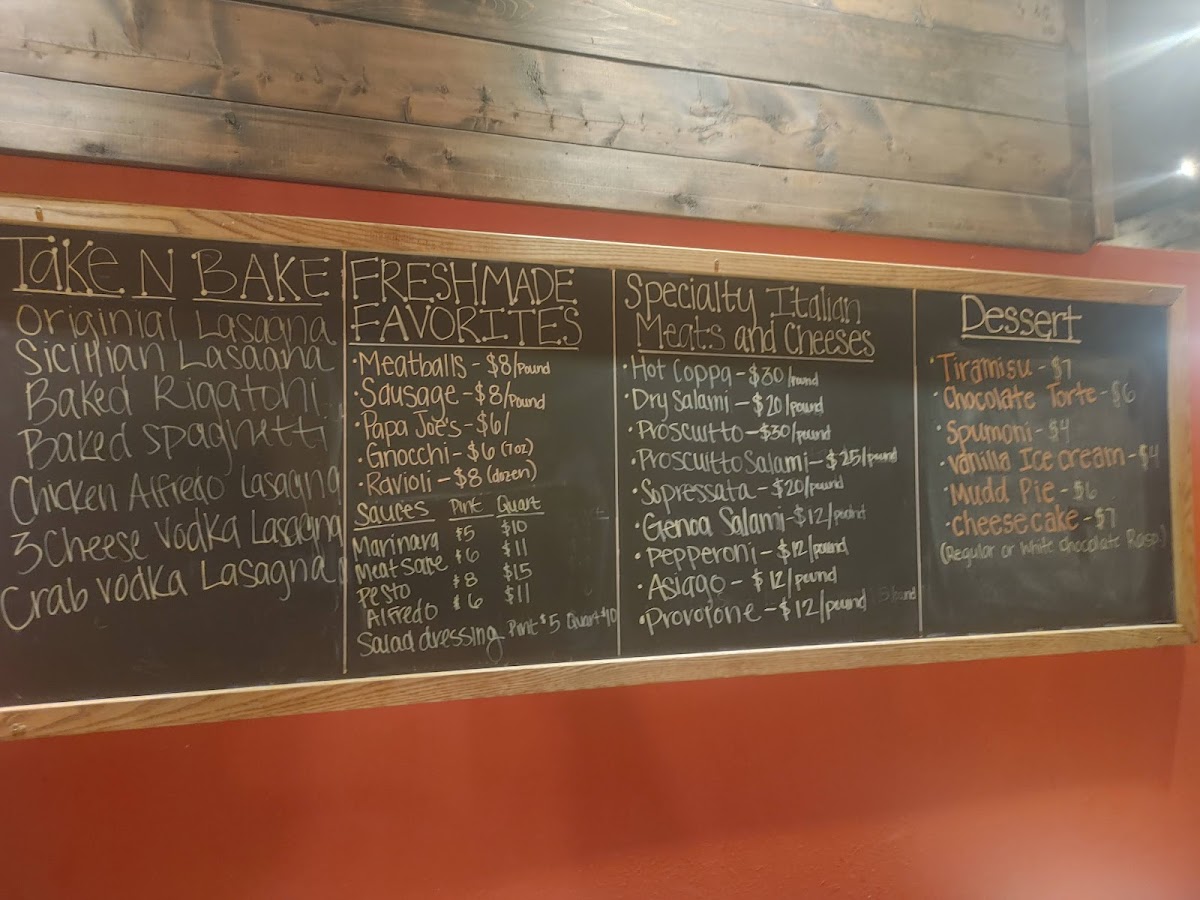 Take N Bake
Originial Lasagna
Sicillian Lasagna
Baked Rigatoni
Baked spaghetti
Chicken Alfredo Lasagna
3 Cheese Vodka Lasagna
Crab vodka Lasagna
FRESHMADE
FAVORITES
·Meatballs - $8/Pound
·Sausage - $8/Pound
·Papa Joe's - $6/
·Gnocchi - $6 (7oz)
·Ravioli - $8 (dozen)
Sauces Pint Quart
Marinara $5 $10
Meat sauce $6 $11
Pesto $8 $15
Alfredo $6 $11
Salad dressing Pint $5 Quart $10
Specialty Italian
Meats and Cheeses
·Hot Coppa - $30/pound
·Dry Salami - $20/pound
·Proscuitto - $30/pound
·Proscuitto Salami - $25/pound
·Sopressata - $20/pound
·Genoa Salami - $12/pound
·Pepperoni - $12/pound
·Asiago - $12/pound
·Provolone - $12/pound
Dessert
·Tiramisu - $7
·Chocolate Torte - $6
·Spumoni - $4
·Vanilla Ice cream - $4
·Mudd Pie - $6
·cheesecake - $7
(Regular or white chocolate Rasp.)